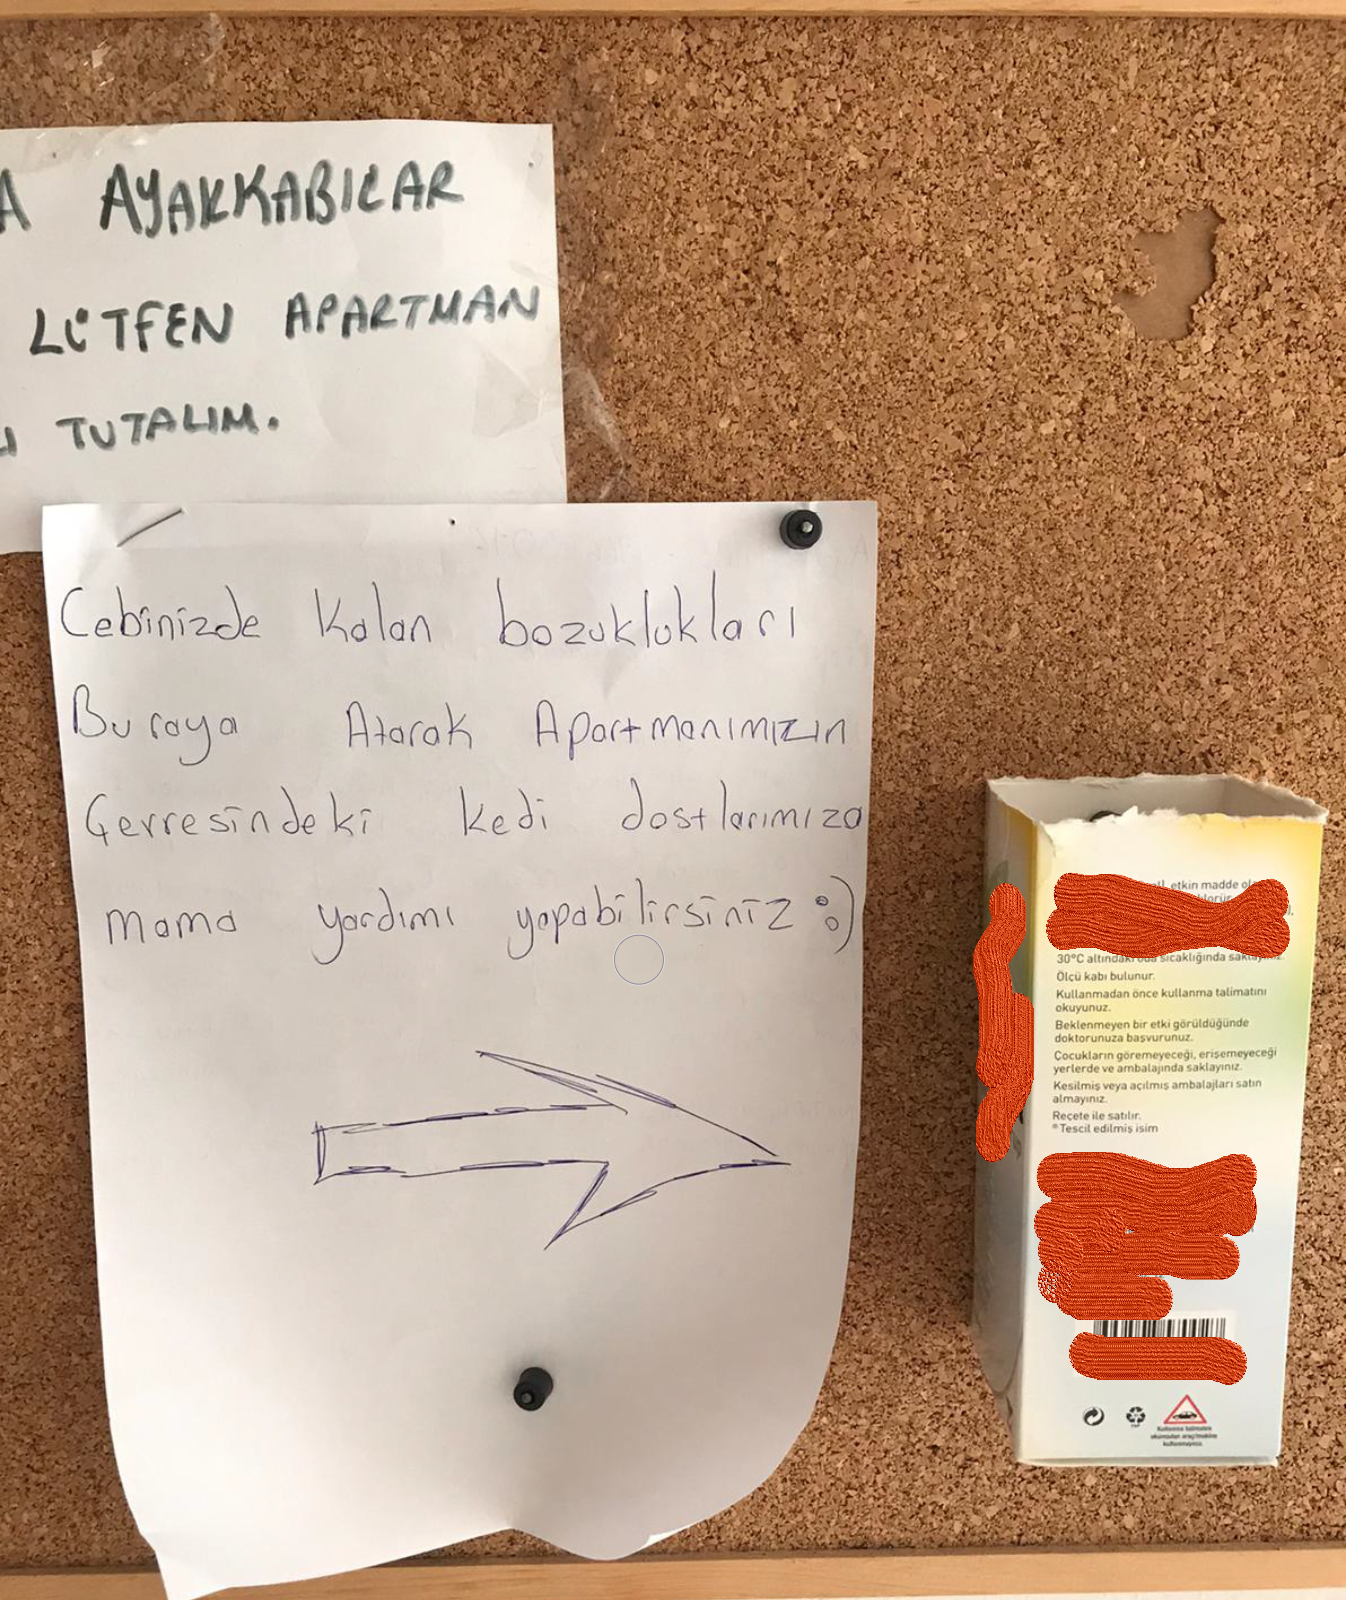 AYAKKABILAR
LÜTFEN APARTMAN
TUTALIM.
Cebinizde Kalan bozuklukları
Buraya Atarak Apartmanımızın
Çevresindeki kedi dostlarımıza
Mama yardımı yapabilirsiniz :)
etkin madde
30°C altındaki oda sıcaklığında saklayınız.
Ölçü kabı bulunur.
Kullanmadan önce kullanma talimatını
okuyunuz.
Beklenmeyen bir etki görüldüğünde
doktorunuza başvurunuz.
Çocukların göremeyeceği, erişemeyeceği
yerlerde ve ambalajında saklayınız.
Kesilmiş veya açılmış ambalajları satın
almayınız.
Reçete ile satılır.
®Tescil edilmiş isim
Kullanma talimatını
okumadan araç/makine
kullanmayınız.